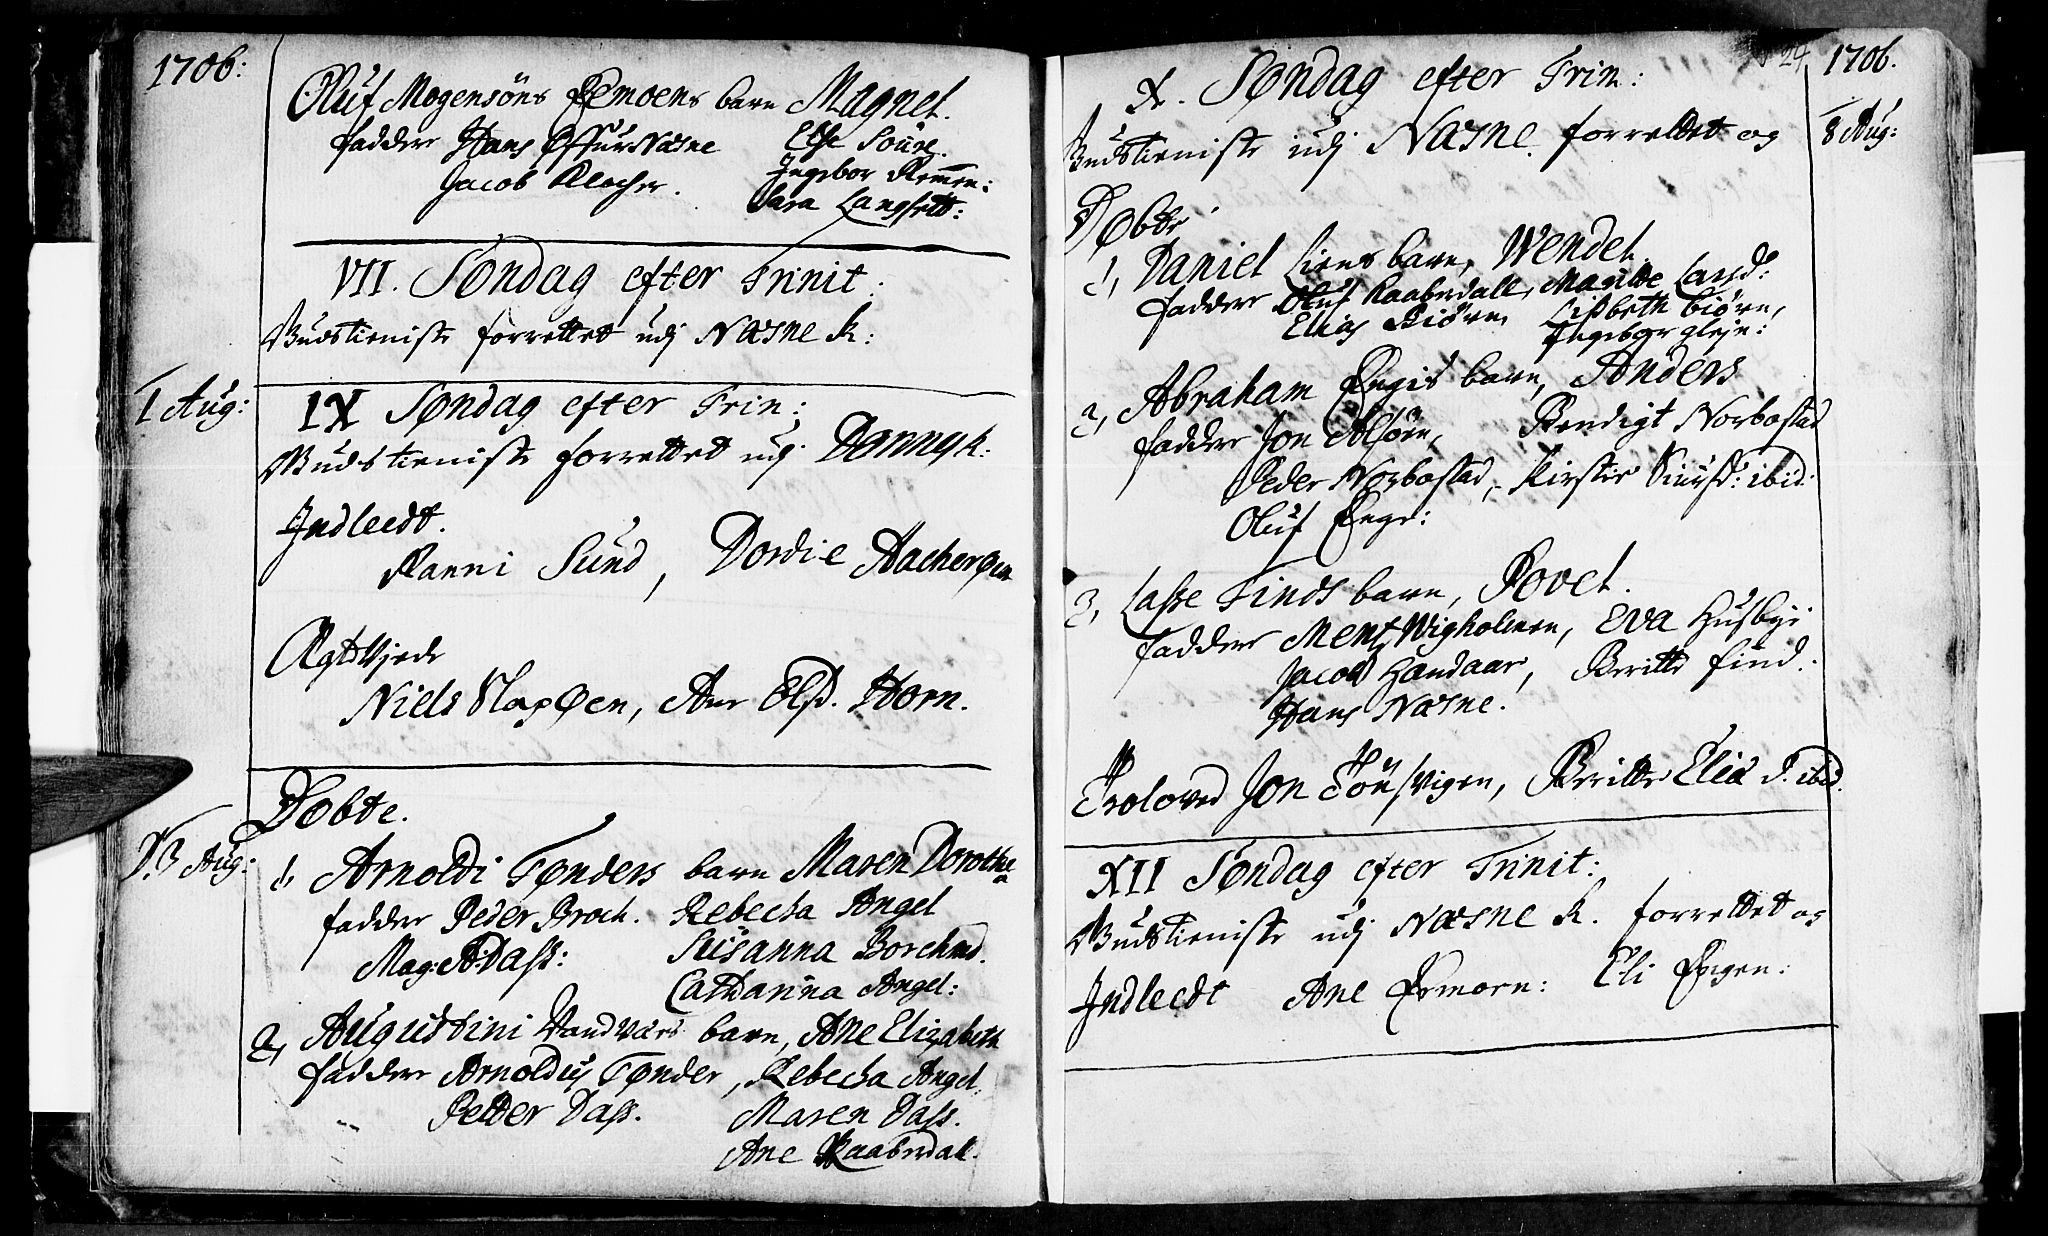 1706:
Oluf Mogensöns Remoens barn Magnel.
fadder Hans Øffur Næsne Else Soüre.
Jacob Klocher. Ingebor Remen:
Sara Langsett:
VII. Søndag efter Trinit:
Gudstieniste forrettet udj Næsne K:
1 Aug:
IX Søndag efter Trin:
Gudstieniste forrettet udj Dønnes K:
Indleedt.
Ranni Sund, Dordie Aacherøen
Ægtevjede
Niels Slapøen, Ane Elsd. Horn.
Døbte.
d. 3 Aug:
1, Arnoldi Tønders barn Maren Dorothea
fadder Peder Broch. Rebecha Angel
Mag: A: Dass: Susanna Borchmd.
Catharina Angel:
2, Augustini Vandvæs barn, Ane Elizabeth
fadder Arnoldus Tønder, Rebecha Angel.
Petter Dass. Maren Dass.
Ane Raabrdall.
24
1706.
X. Søndag efter Trin:
8 Aug:
Gudstieniste udj Næsne forrettet og
Døbte
1, Daniel Liens barn, Wendel.
fadder Oluf Raabrdall, Maritte Larsd:
Elias Biørn, Lisbeth biørn,
Ingebor glein:
2, Abraham Engis barn, Anders
fadder Jon Alsøen, Bendigt Norbostad
Peder Norbostad, Kirstie Siursd: ibid:
Oluf Enge:
3, Lasse Finds barn, Povel.
fadder Ment Wigholmen, Eva Husbyi
Jacob Handaar, Beritte find.
Hans Næsne.
Troloved Jon Tönsvigen, Beritte Elia d. ibid.
XII Søndag efter Trinit:
Gudstieniste udj Næsne K. forrettet og
Indleedt Ane Remoen: Eli Engen: